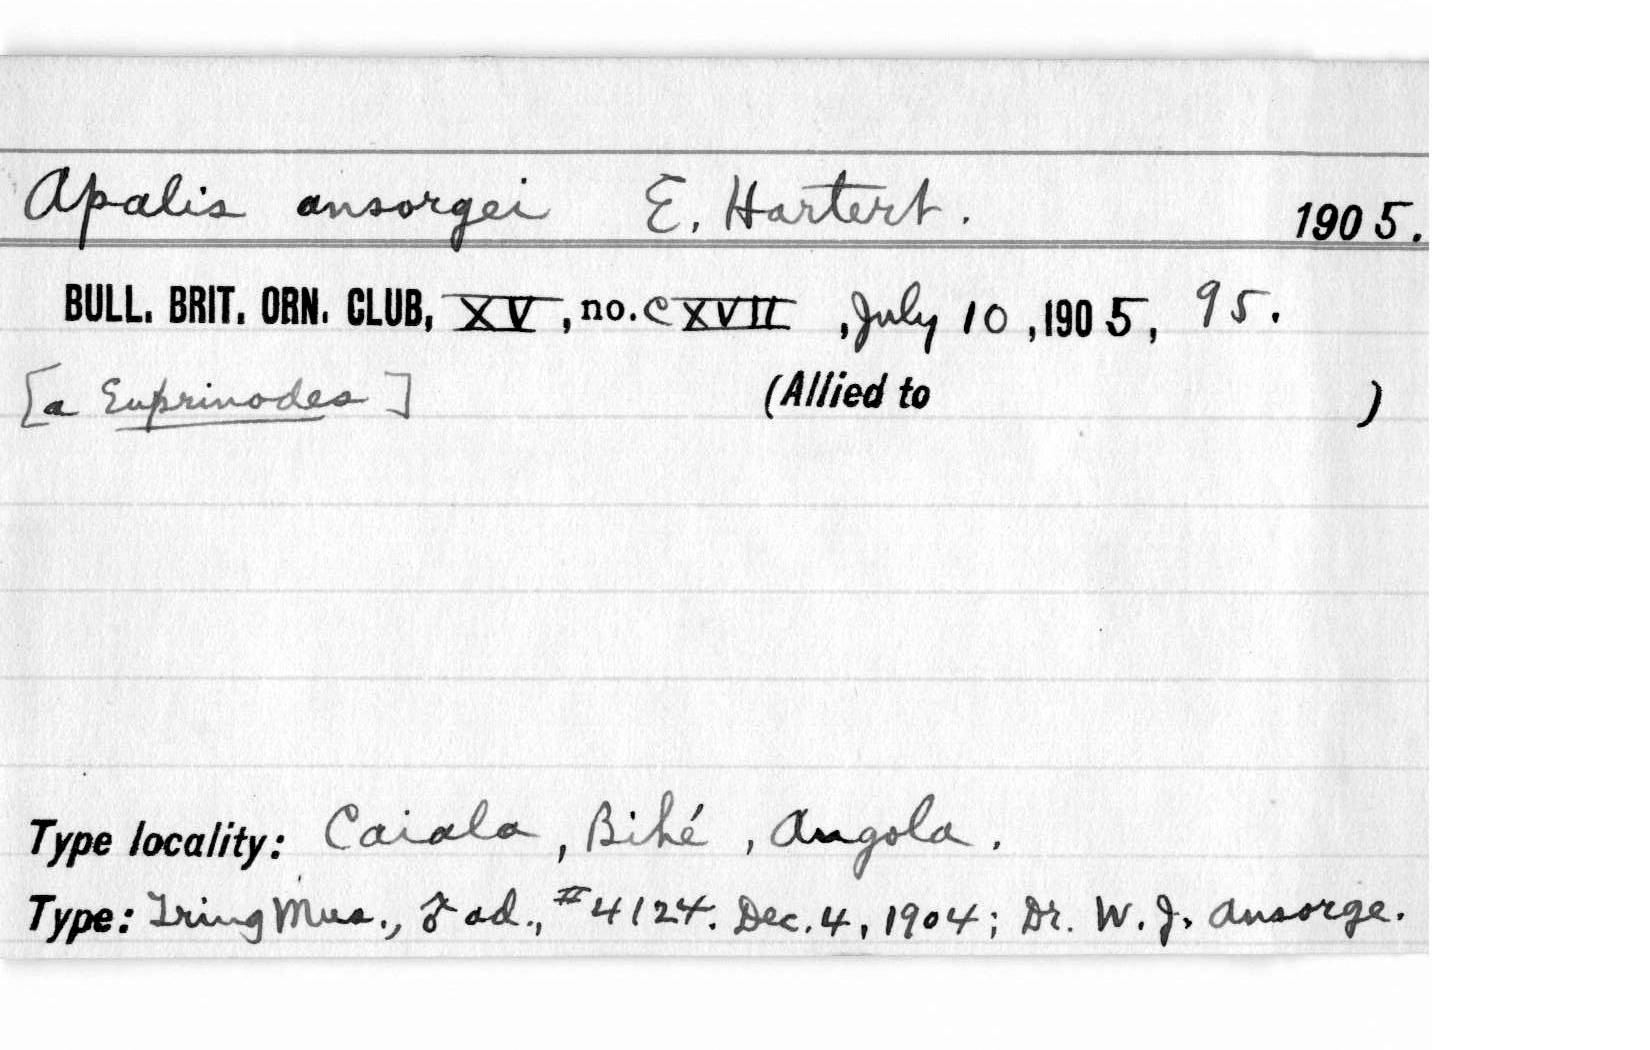 Apalis ansorgei E. Hartert. 1905.
BULL. BRIT. ORN. CLUB, XV, no. CXVII, July 10, 1905, 95.
[a Euprinodes] (Allied to )
Type locality: Caiala, Bihé, Angola.
Type: Tring Mus., ♂ ad., #4124. Dec. 4, 1904; Dr. W. J. Ansorge.